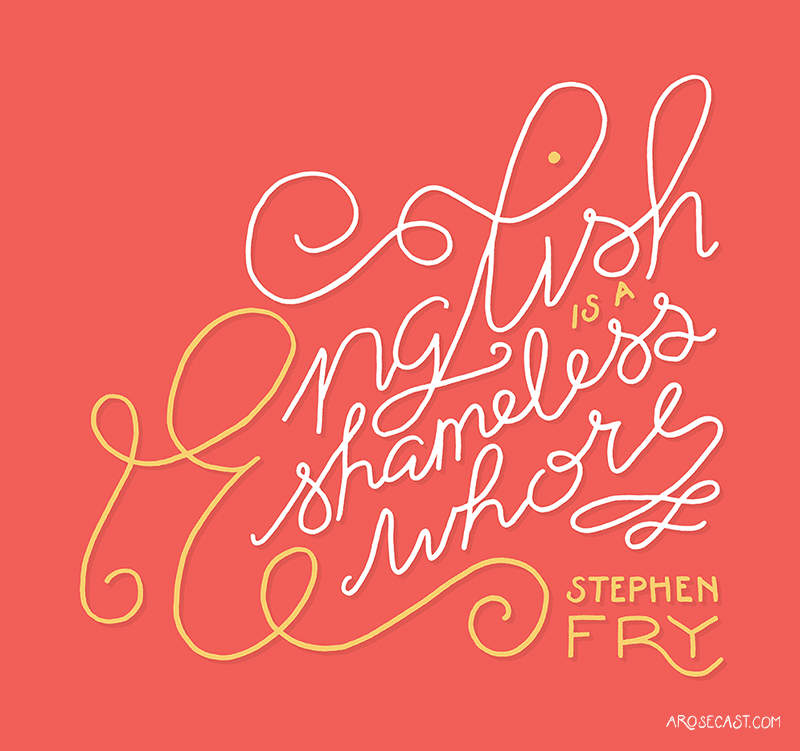 English
is a
shameless
whore
STEPHEN
FRY
AROSECAST.COM